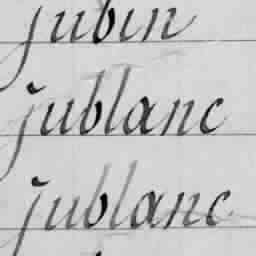 jubin
jublanc
jublanc